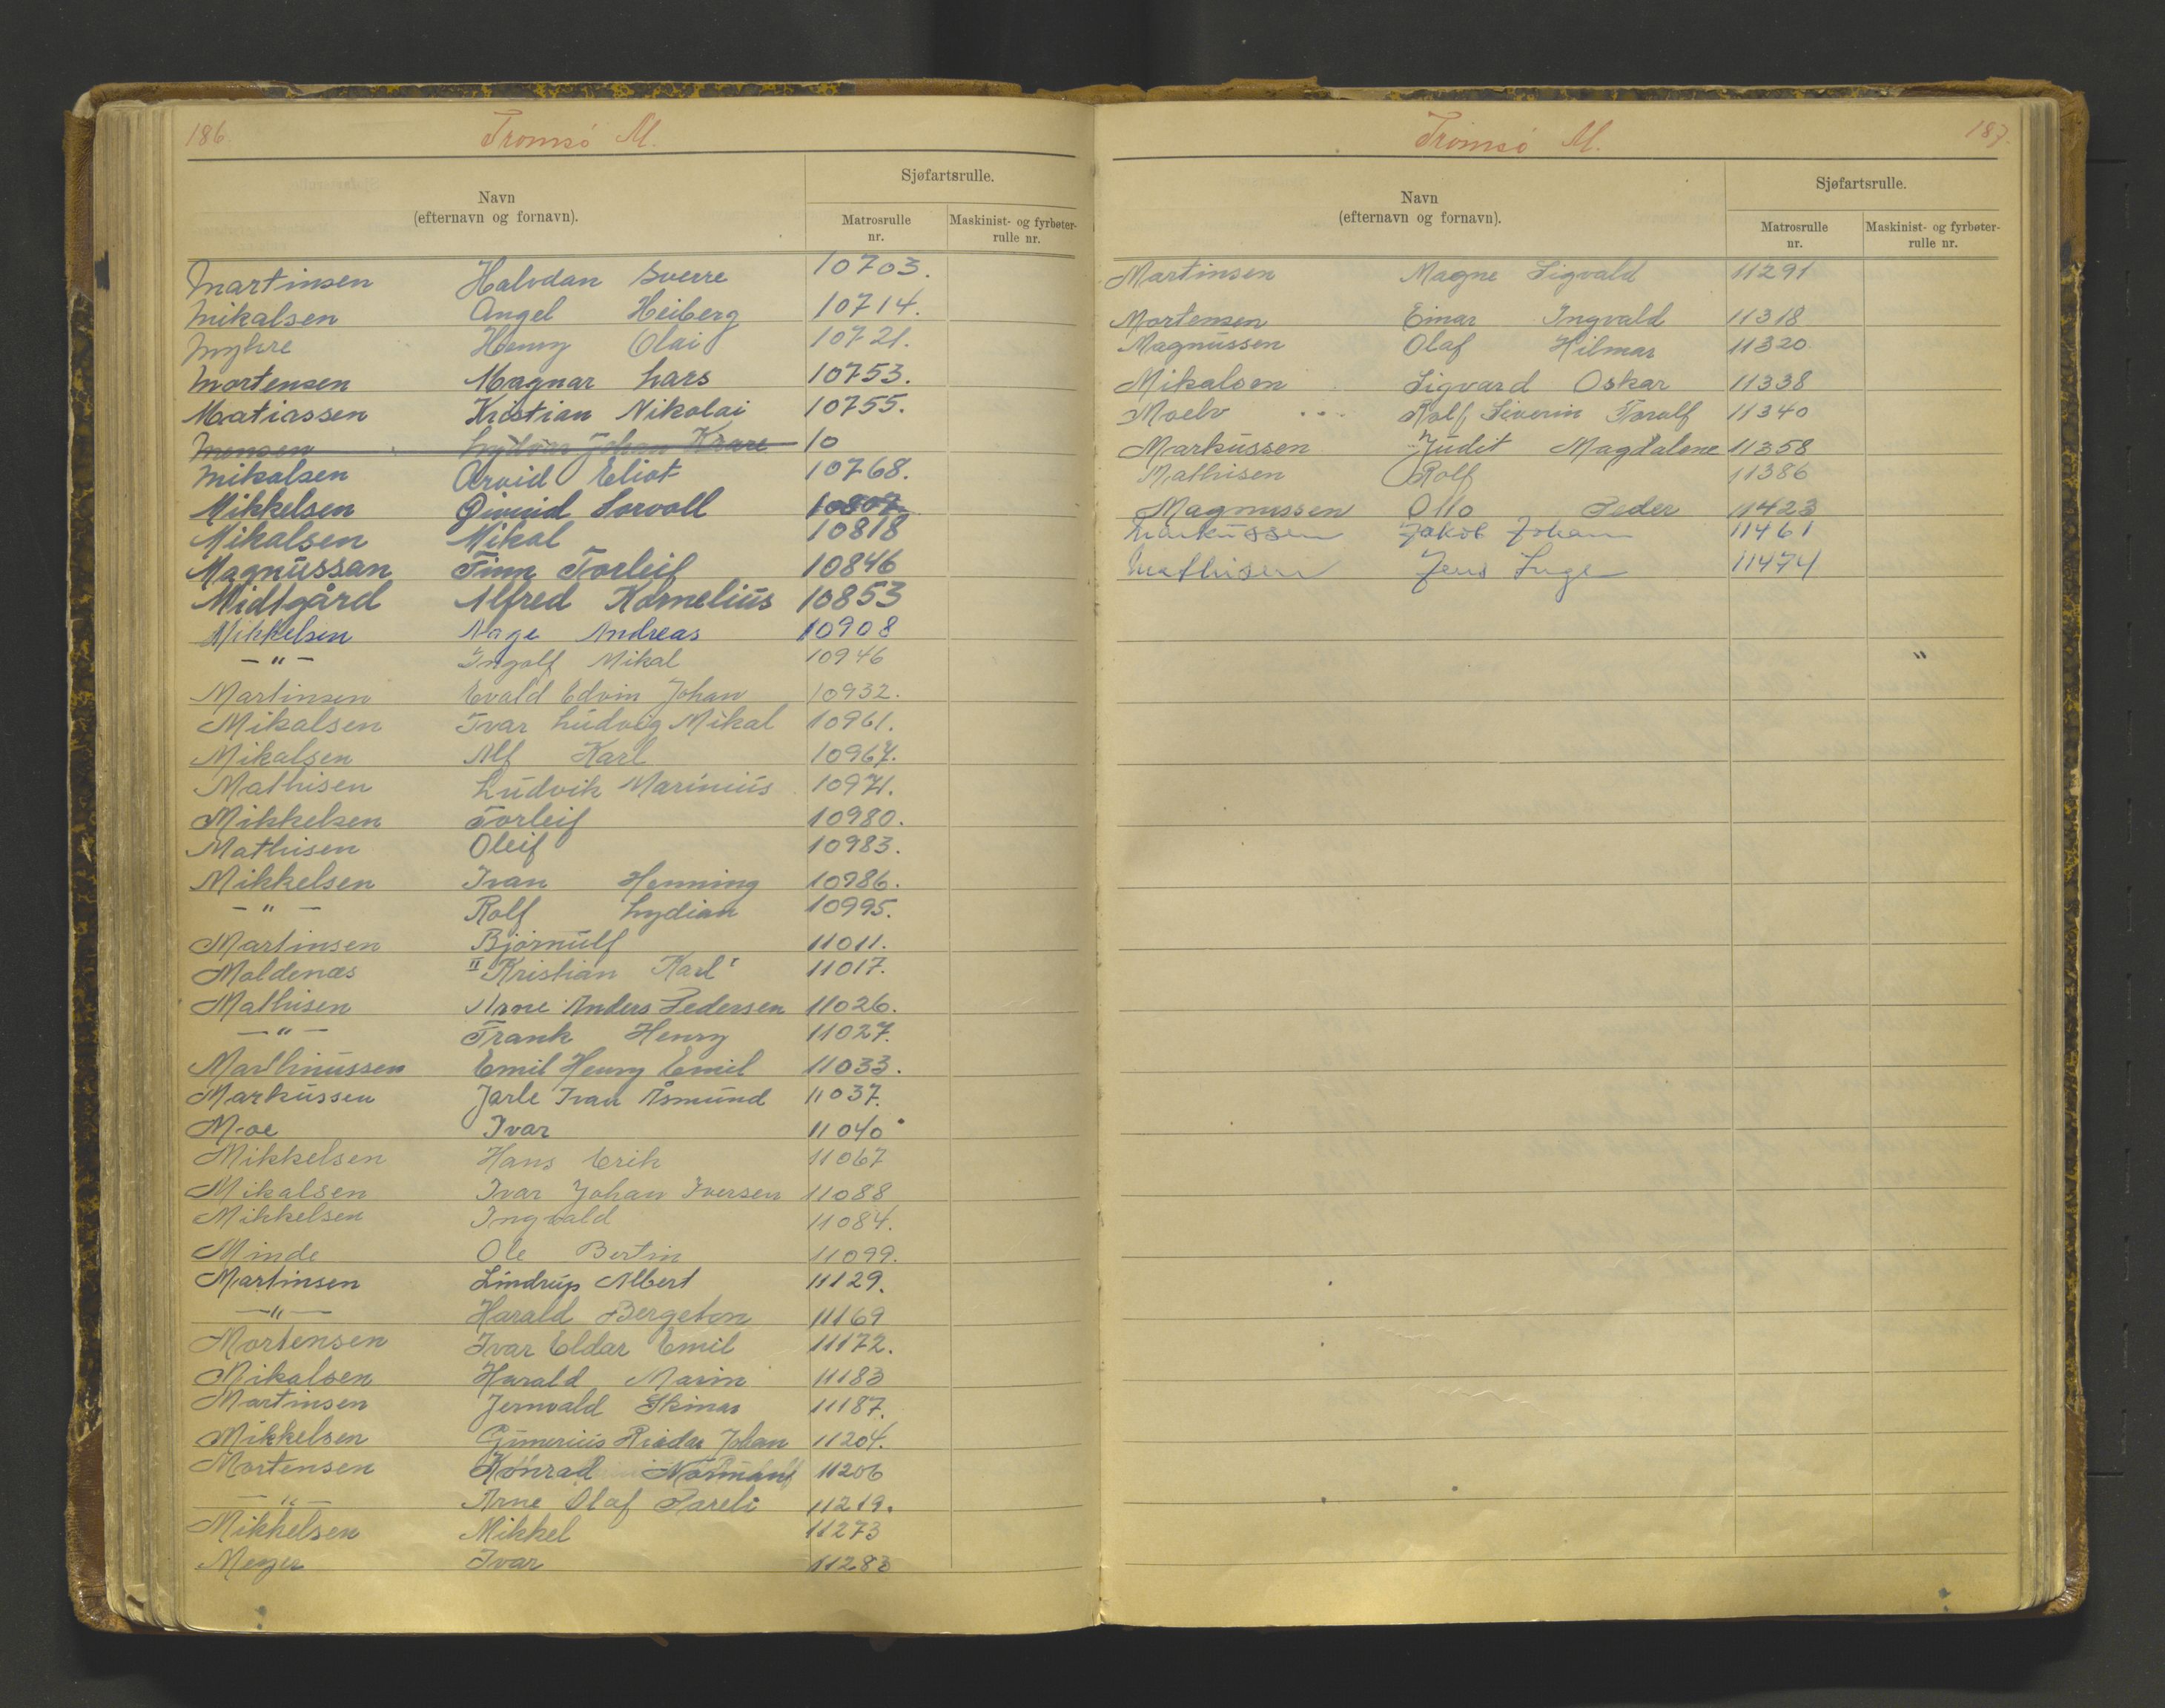 186.
Tromsø M.
Navn
(efternavn og fornavn).
Sjøfartsrulle.
Matrosrulle
nr.
Maskinist- og fyrbøter-
rulle nr.
Martinsen Halvdan Sverre 10703.
Mikalsen Angel Heiberg 10714.
Myhre Henry Olai 10721.
Mortensen Magnar Lars 10753.
Matiassen Kristian Nikolai 10755.
Monsen Johan Kaare 10
Mikalsen Arvid Eliot 10768.
Mikkelsen Øivind Sørvoll 10807.
Mikalsen Mikal 10818
Magnussan Finn Torleif 10846
Midtgård Alfred Kornelius 10853
Mikkelsen Aage Andreas 10908
—"— Ingolf Mikal 10946
Martinsen Evald Edvin Johan 10932.
Mikalsen Ivar Ludvig Mikal 10961.
Mikalsen Alf Karl 10967.
Mathisen Ludvik Marinius 10971.
Mikkelsen Torleif 10980.
Mathisen Oleif 10983.
Mikkelsen Ivan Henning 10986.
—"— Rolf Lydian 10995.
Martinsen Bjørnulf 11011.
Moldenæs Kristian Karl 11017.
Mathisen Arne Anders Pedersen 11026.
—"— Frank Henry 11027.
Marthinussen Emil Henry Emil 11033.
Markussen Jarle Ivan Åsmund 11037.
Moe Ivar 11040
Mikkelsen Hans Erik 11067
Mikalsen Ivar Johan Iversen 11088
Mikkelsen Ingvald 11084.
Minde Ole Bertin 11099.
Martinsen Lindrup Albert 11129.
—"— Harald Bergeton 11169
Mortensen Ivar Eldar Emil 11172.
Mikalsen Harald Marin 11183
Martinsen Jernvald Skinar 11187.
Mikkelsen Gunerius Riedar Johan 11204.
Mortensen Konrad Normann 11206
—"— Arne Olaf Pareli 11219.
Mikkelsen Mikkel 11273
Meyer Ivar 11283
Tromsø M.
187.
Navn
(efternavn og fornavn).
Sjøfartsrulle.
Matrosrulle
nr.
Maskinist- og fyrbøter-
rulle nr.
Martinsen Magne Sigvald 11291
Mortensen Einar Ingvald 11318
Magnussen Olaf Hilmar 11320
Mikalsen Sigvard Oskar 11338
Moelv Rolf Siverin Torolf 11340
Markussen Judit Magdalene 11358
Mathisen Rolf 11386
Magnussen Otto Peder 11423
Markussen Jakob Johan 11461
Mathisen Jens Inge 11474
"